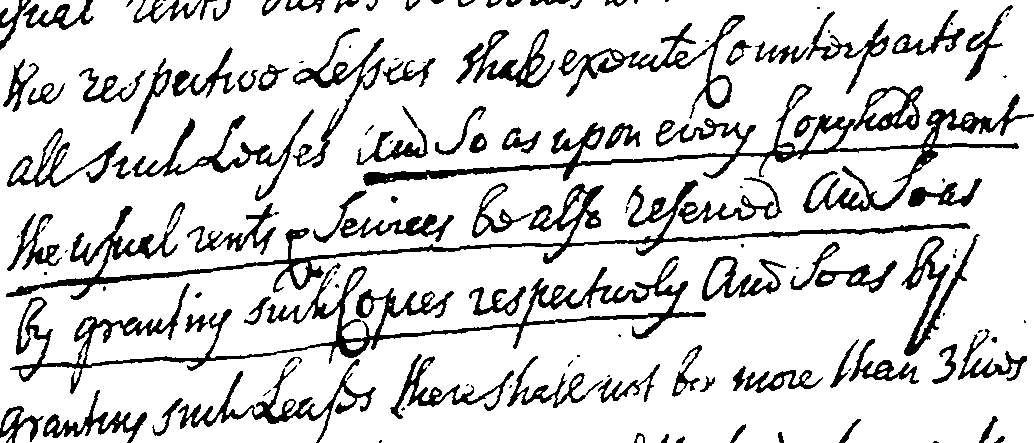 usual rents
the respective Lessees shall execute Counterparts of
all such Leases And So as upon every Copyhold grant
the usual rents & Services be also reserved And So as
by granting such Copies respectively And So as by
granting such Leases there shall not be more than 3 lives